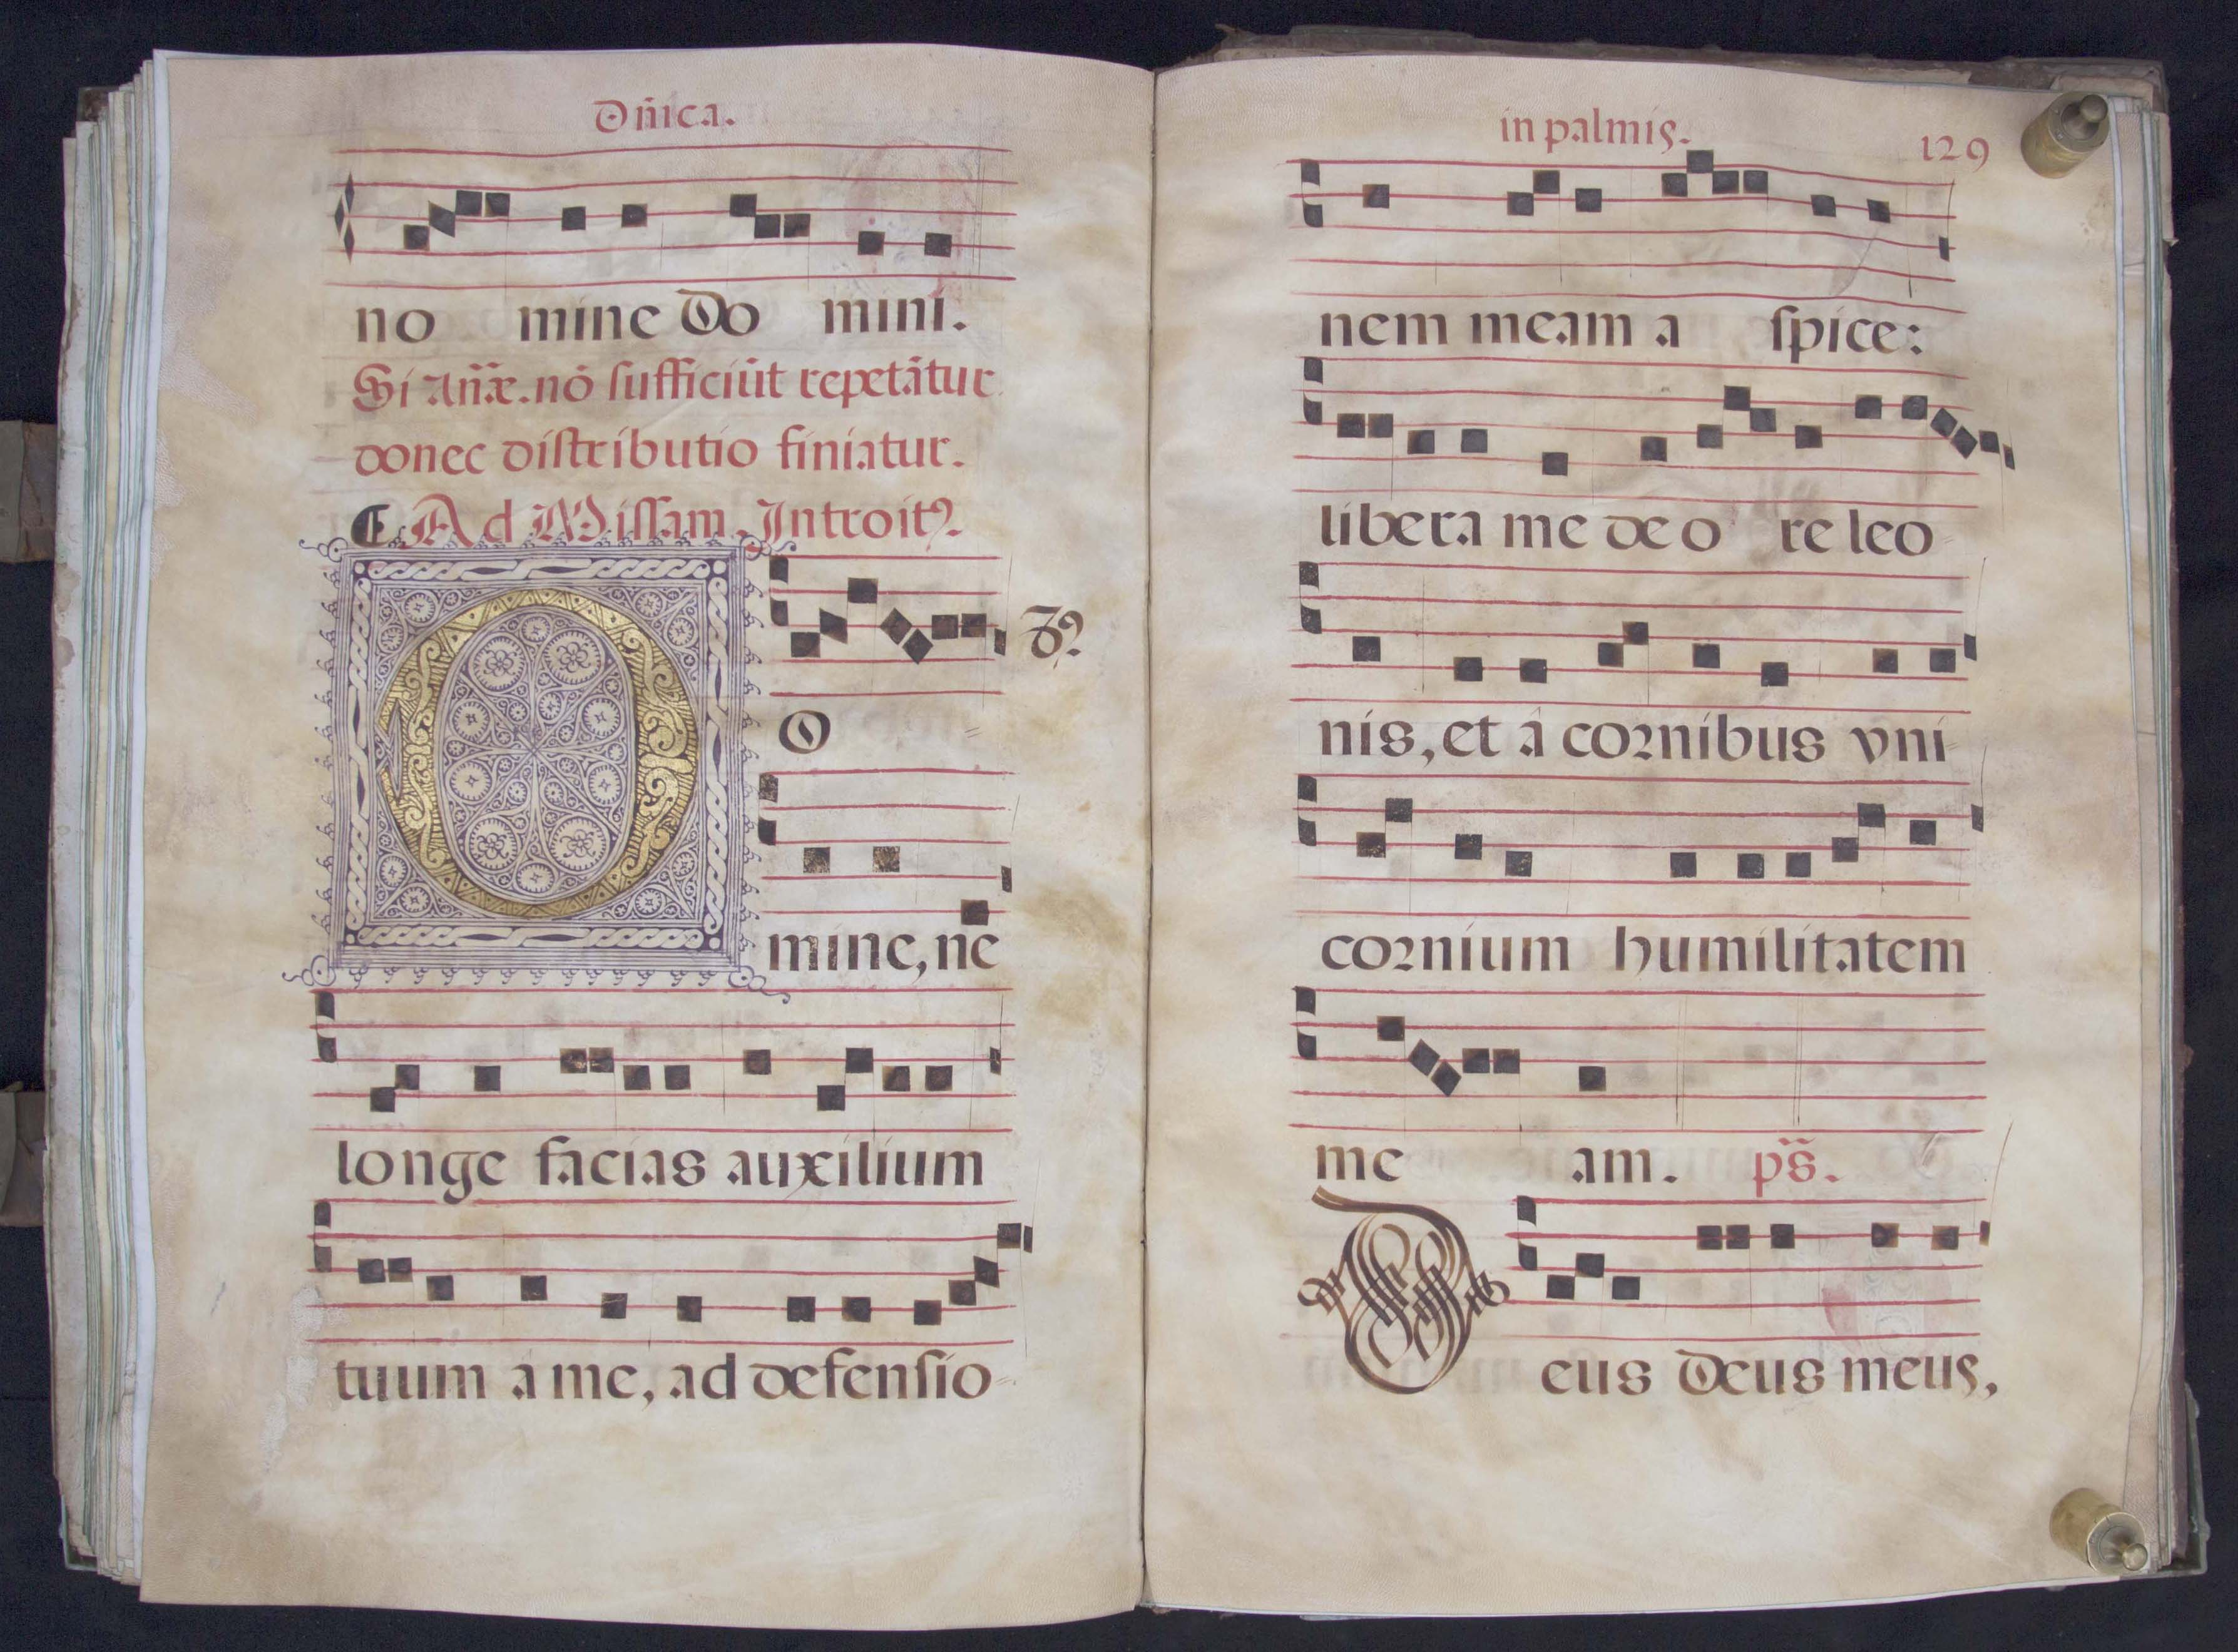 Dn̄ica.
no mine Do mini.
Si Añæ. nō sufficiūt repetātur
donec distributio finiatur.
¶ Ad Missam. Introitꝰ.
8ꝰ
DO
mine, ne
longe facias auxilium
tuum â me, ad defensio
in palmis.
129
nem meam a spice:
libera me de o re leo
nis, et â cornibus vni
cornium humilitatem
me am. ps̄.
Deus Deus meus,